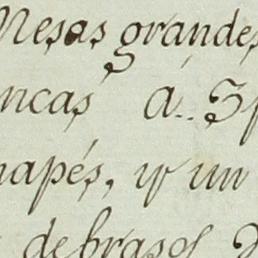 Mesas grandes
ncas a..
napés, y un
de brasos